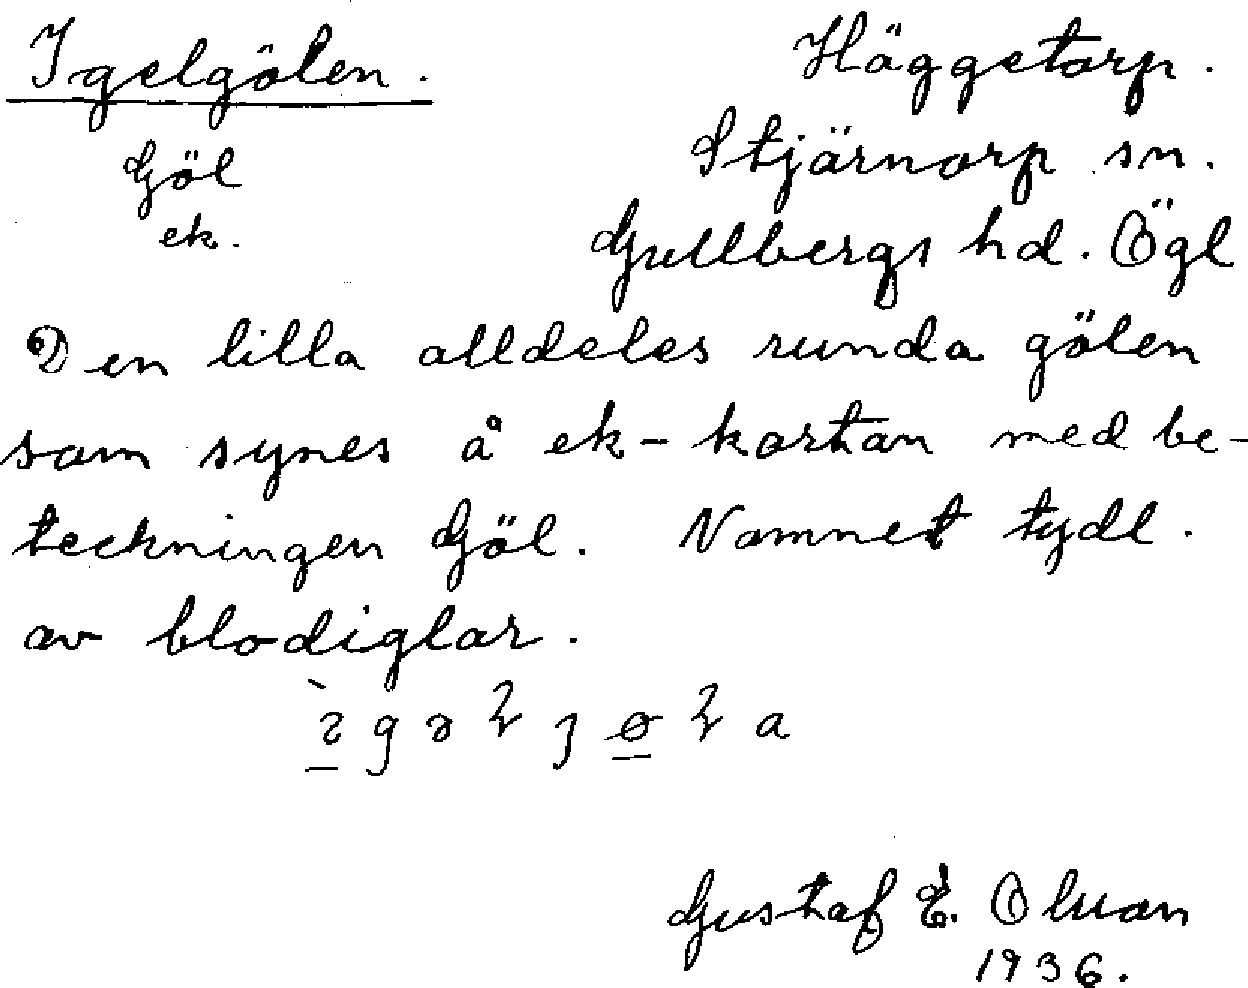 Igelgölen.
Göl
ek.
Häggetorp.
Stjärnorp sn.
Gullbergs hd. Ögl
Den lilla alldeles runda gölen
som synes å ek-kartan med be-
teckningen Göl. Namnet tydl.
av blodiglar.
Gustaf E. Olsson
1936.